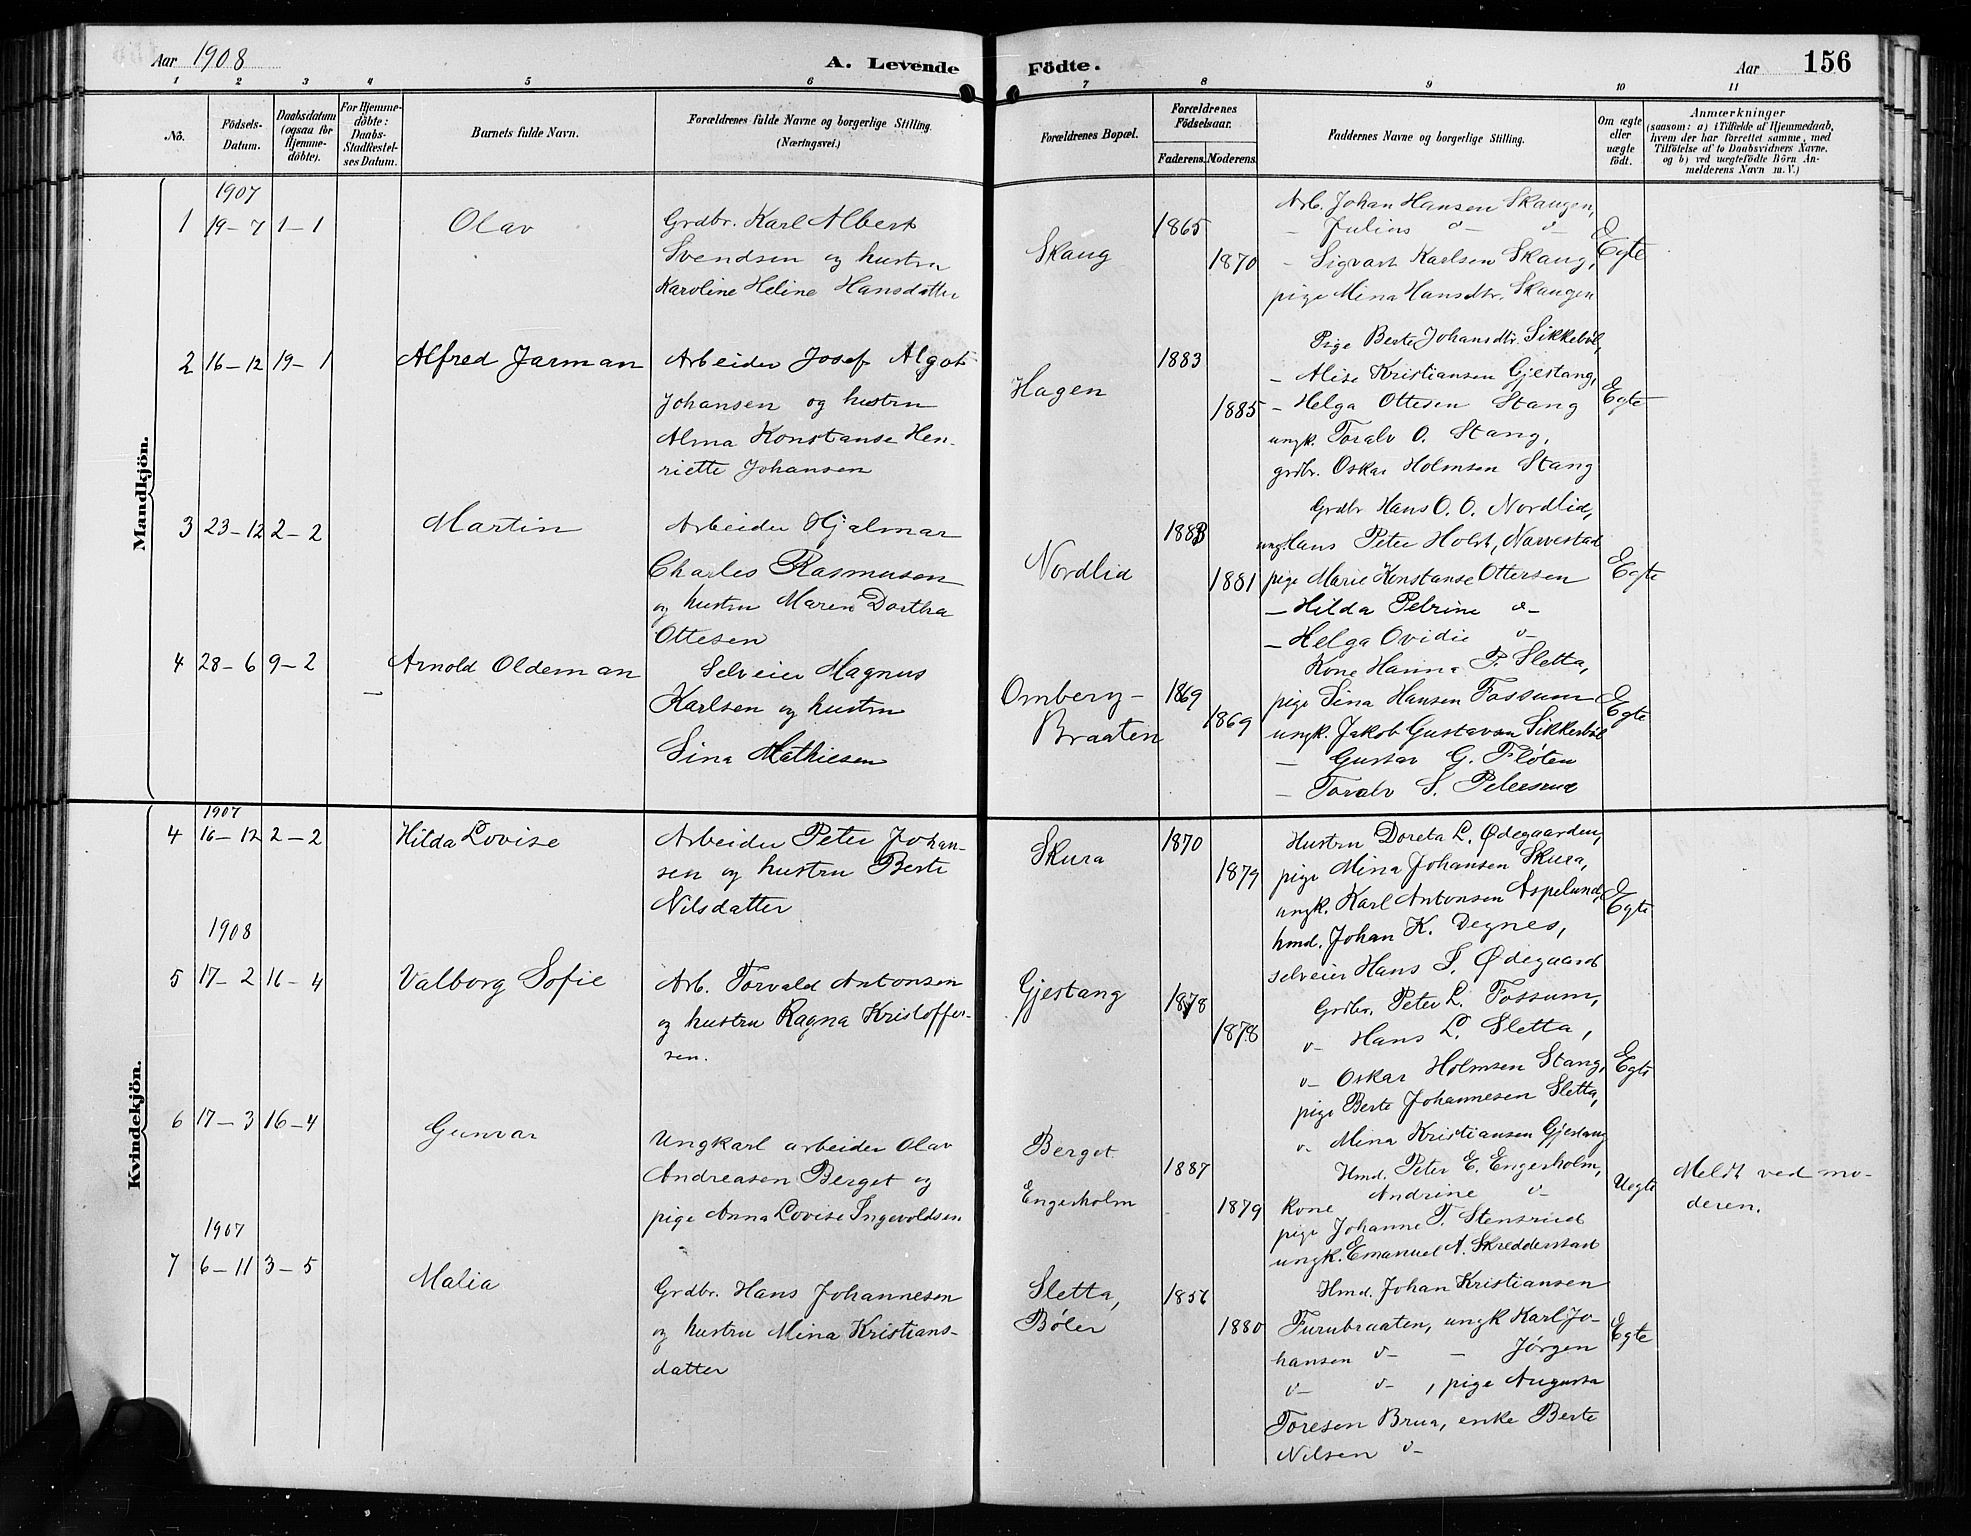 Aar 1908
A. Levende Födte.
Aar 156
1 2 3 4 5 6 7 8 9 10 11
No.
Födsels-Datum.
Daabsdatum (ogsaa for Hjemme-döbte).
For Hjemme-döbte: Daabs-Stadfæstel-ses Datum.
Barnets fulde Navn.
Forældrenes fulde Navne og borgerlige Stilling. (Næringsvei.)
Forældrenes Bopæl.
Forældrenes Födselsaar.
Faderens. Moderens.
Faddernes Navne og borgerlige Stilling.
Om ægte eller uægte födt.
Anmærkninger
(saasom: a) i Tilfælde af Hjemmedaab,
hvem der har forrettet samme, med
Tilföielse af to Daabsvidners Navne,
og b) ved uægtefödte Börn An-
melderens Navn m. V.)
Mandkjön.
1907
1 19-7 1-1 Olav
Grdbr. Karl Albert
Svendsen og hustru
Karoline Heline Hansdatter
Skaug
1865
1870
Arb. Johan Hansen Skaugen,
- Julius v- v-
- Sigvart Karlsen Skaug,
pige Mina Hansdtr. Skaugen
Egte
2 16-12 19-1 Alfred Jarman
Arbeider Josef Algot
Johansen og hustru
Alma Konstanse Hen-
riette Johansen
Hagen
1883
1885
Pige Berte Johansdtr. Sikkebøl,
- Alise Kristiansen Gjestang,
- Helga Ottesen Stang
ungk. Toralv O. Stang,
grdbr. Oskar Holmsen Stang
Egte
3 23-12 2-2 Martin
Arbeider Hjalmar
Charles Rasmusen
og hustru Maren Dortha
Ottesen
Nordlid
1883
1881
Grdbr Hans O. O. Nordlid,
ung. Hans Peter Holst, Narvestad
pige Marie Konstanse Ottersen
- Hilda Petrine v-
- Helga Ovidie v-
Egte
4 28-6 9-2 - Arnold Oldeman
Selveier Magnus
Karlsen og hustru
Lina Mathiesen
Omberg-
Braaten
1869
1869
Kone Hanna P. Sletta,
pige Lina Hansen Fossum
ungk. Jakob Gustavsen Sikkerbøl
- Gustav G. Fløten
- Toralv S.
Egte
Kvindekjön.
1907
4 16-12 2-2 Hilda Lovise
Arbeider Peter Johan-
sen og hustru Berte
Nilsdatter
Skura
1870
1879
Hustru Doreta L. Ødegaarden,
pige Mina Johansen Skura,
ungk. Karl Antonsen Aspelund,
hmd. Johan K. Degnes,
selveier Hans S. Ødegaard
Egte
1908
5 17-2 16-4 Valborg Sofie
Arb. Torvald Antonsen
og hustru Ragna Kristoffer-
sen.
Gjestang
1878
1878
Grdbr. Peter L. Fossum,
v- Hans L. Sletta,
v- Oskar Holmsen Stang,
pige Berte Johannesen Sletta,
v. Mina Kristiansen Gjestang
Egte
6 17-3 16-4 Gunvor
Ungkarl arbeider Olav
Andreasen Berget og
pige Anna Lovise Ingevoldsen
Berget
Engerholm
1887
1879
Hmd. Peter E. Engerholm,
kone Andrine v-
pige Johanne T. Stensrud
ungk. Emanuel A. Skredderstad
Uegte
Meldt ved mo-
deren.
1907
7 6-11 3-5 Malia
Grdbr. Hans Johannesen
og hustru Mina Kristians-
datter
Sletta,
Bøler
1856
1880
Hmd. Johan Kristiansen
Furubraaten, ungk Karl Jo-
hansen v- - Jørgen
v- v-, pige Augusta
Toresen Brua, enke Berte
Nilsen v-
Egte